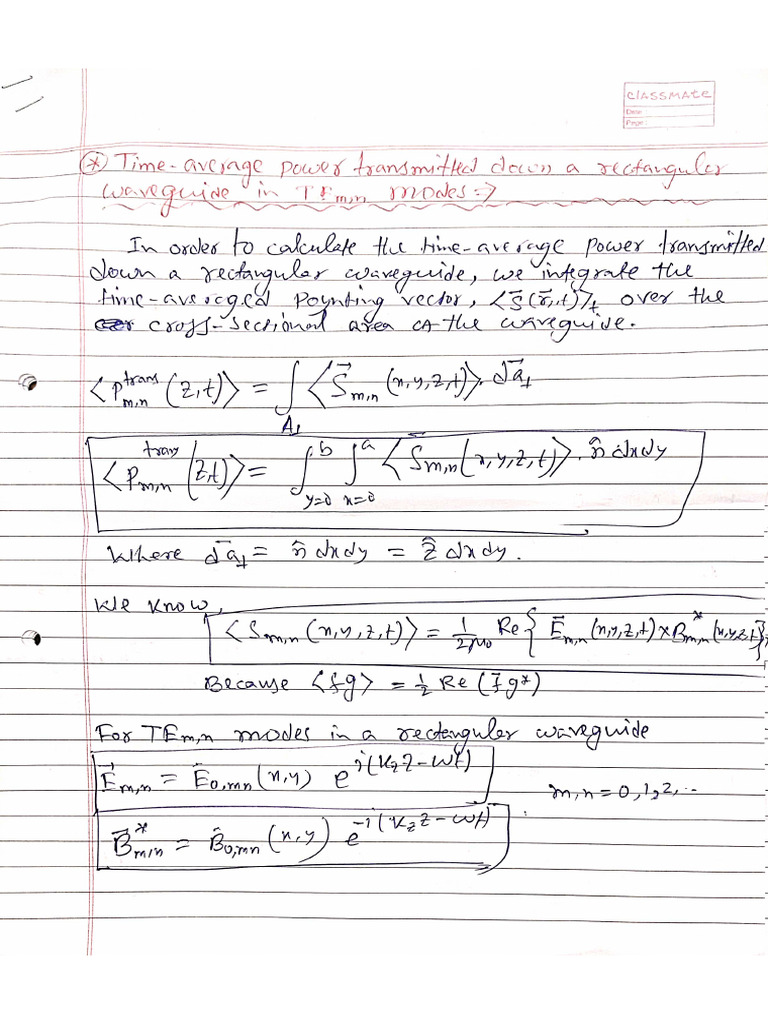 classmate
Date
Page
* Time-average power transmitted down a rectangular
waveguide in TEm,n modes ⇒
In order to calculate the time-average power transmitted
down a rectangular waveguide, we integrate the
time-averaged Poynting vector, <S⃗(r⃗,t)>t over the
cross-sectional area of the waveguide.
<P^trans_m,n (z,t)> = ∫_A⊥ <S⃗_m,n (x,y,z,t)> . da⃗⊥
<P^trans_m,n (z,t)> = ∫_{y=0}^{b} ∫_{x=0}^{a} <S⃗_m,n (x,y,z,t)> . n̂ dxdy
Where da⃗⊥ = n̂ dxdy = ẑ dxdy.
We know,
<S_m,n (x,y,z,t)> = 1/2μ0 Re{ E⃗_m,n (x,y,z,t) × B*_m,n (x,y,z,t)}
Because <fg> = 1/2 Re (f g*)
For TEm,n modes in a rectangular waveguide
E⃗_m,n = E⃗_0,mn (x,y) e^i(kz z - ωt)
m,n = 0,1,2,..
B⃗*_m,n = B⃗_0,mn (x,y) e^-i(kz z - ωt)